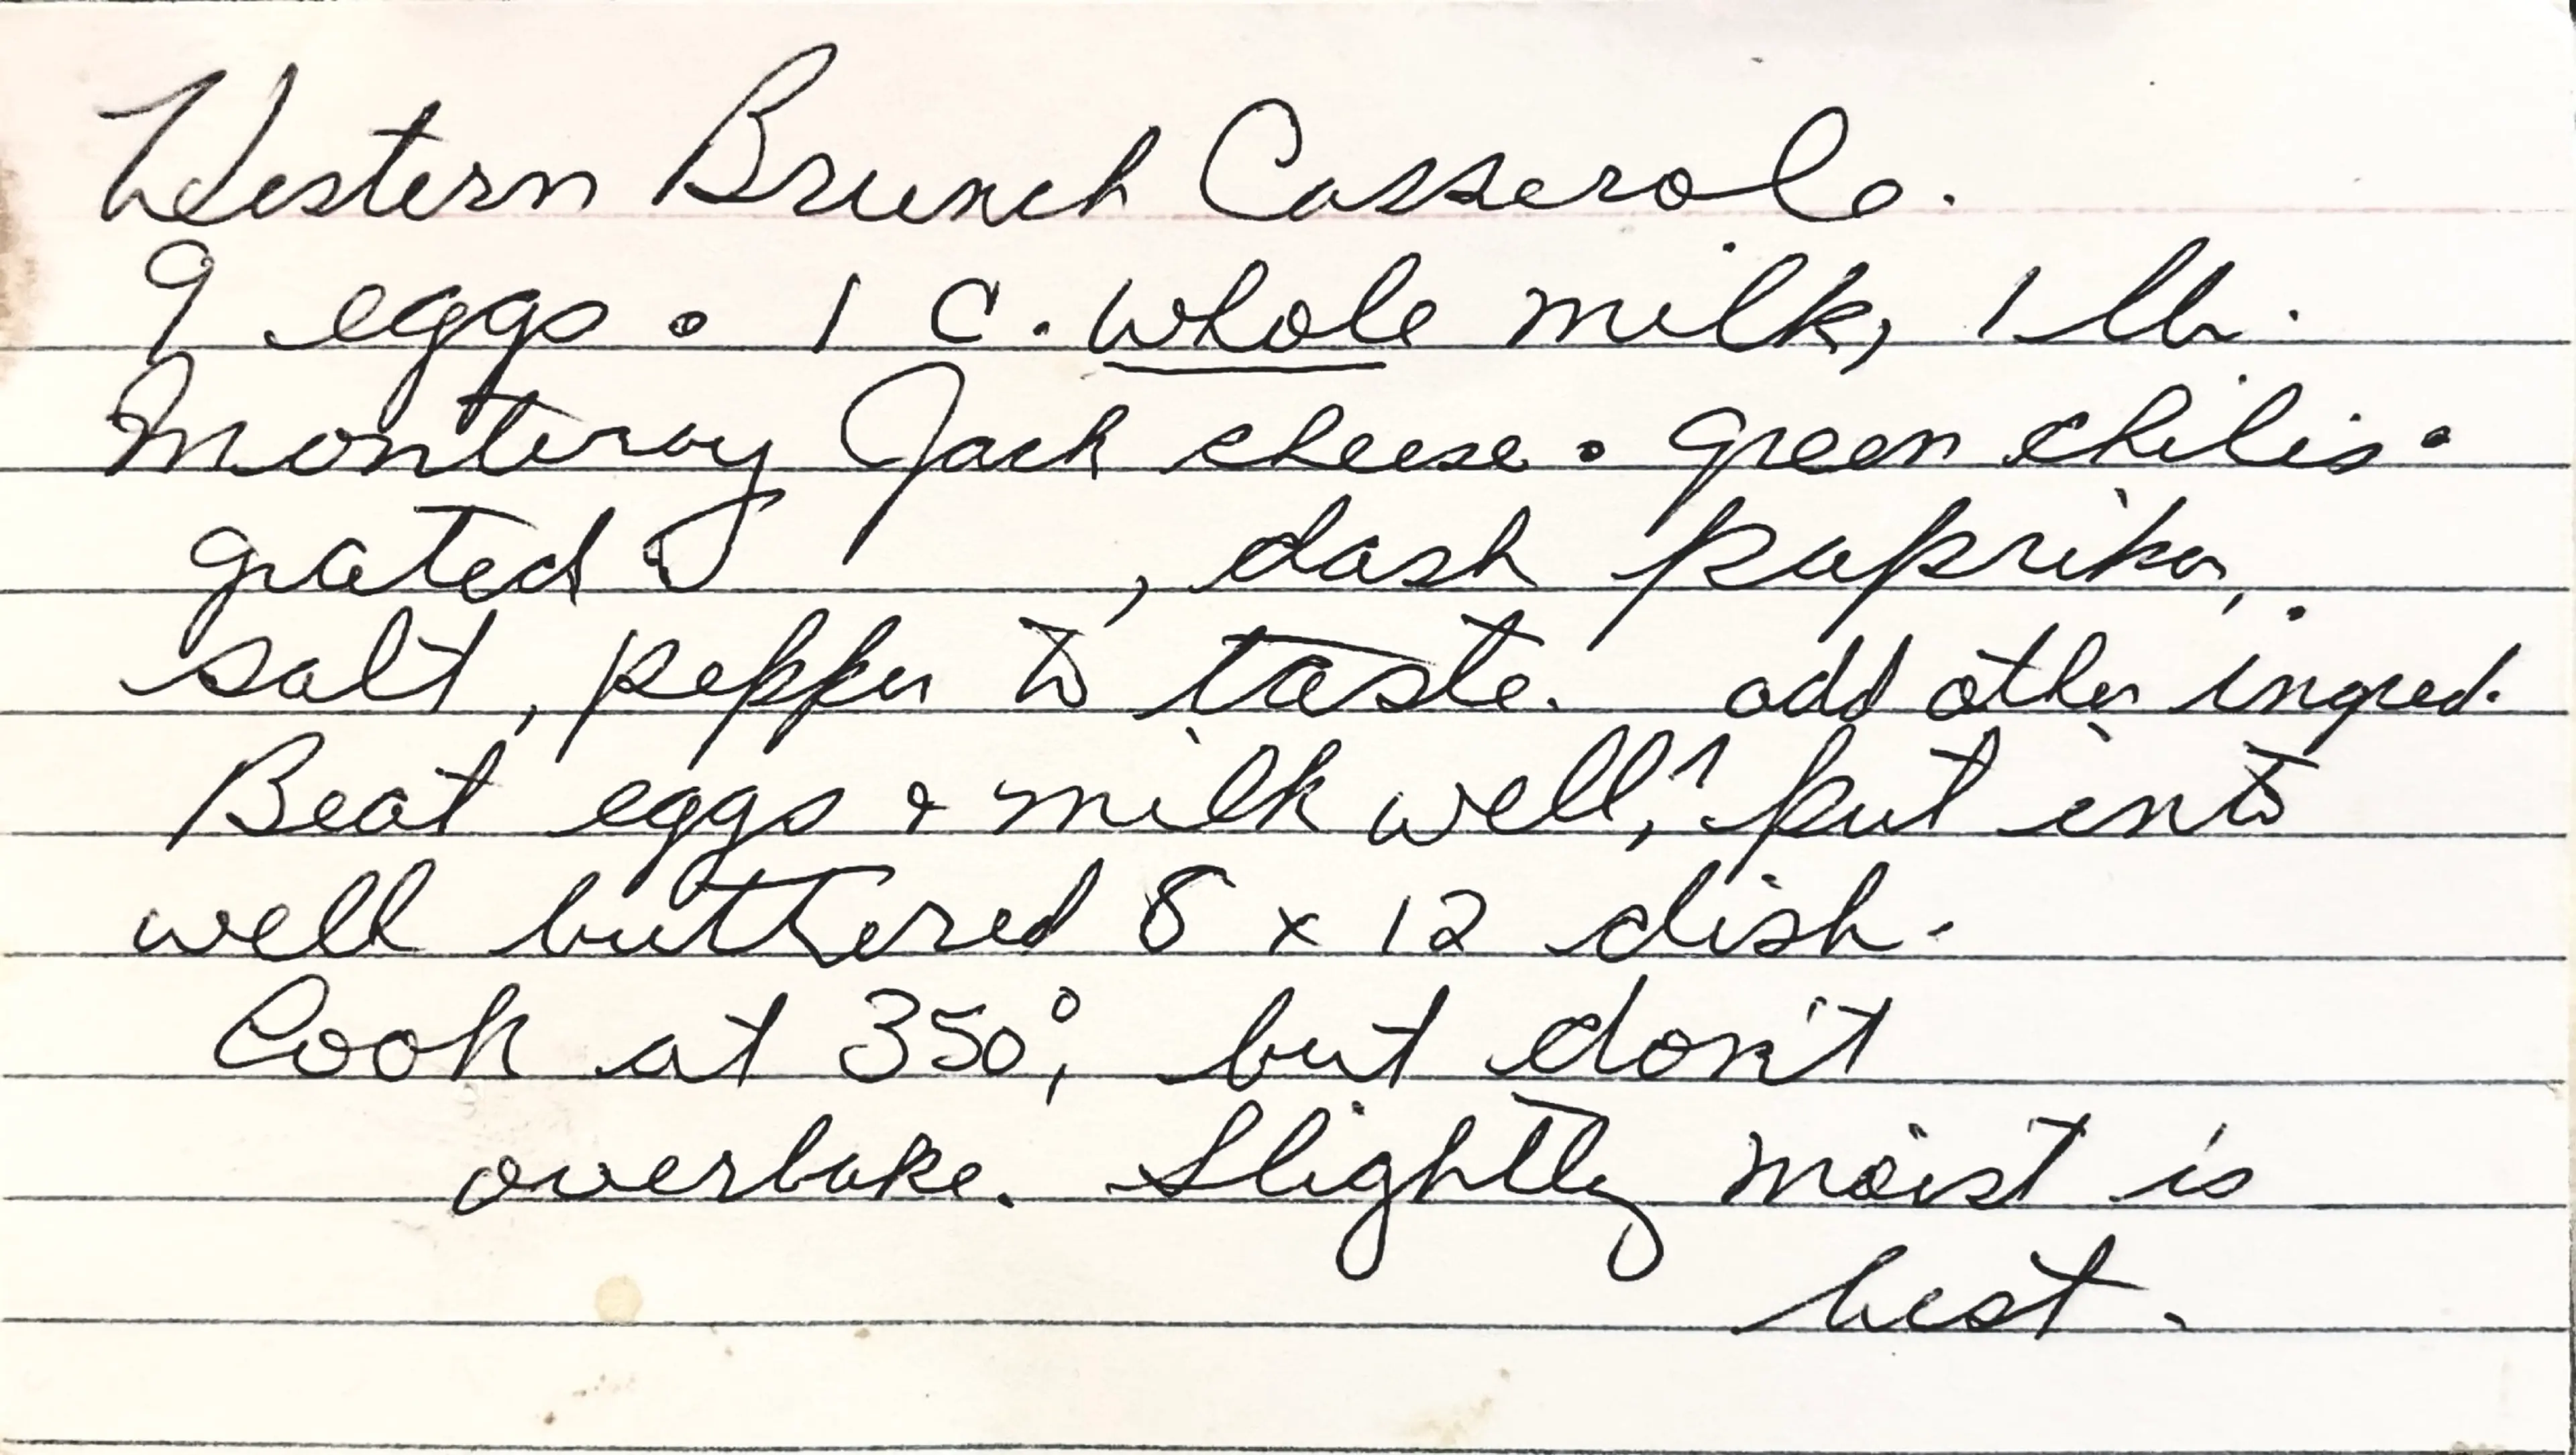 Western Brunch Casserole.
9 eggs. 1 c. whole milk, 1 lb.
Monteray Jack cheese. green chilis.
grated , dash paprika,
salt, pepper to taste. add other ingred.
Beat eggs & milk well, ^ put into
well buttered 8 x 12 dish.
Cook at 350°, but don't
overbake. Slightly moist is
best.